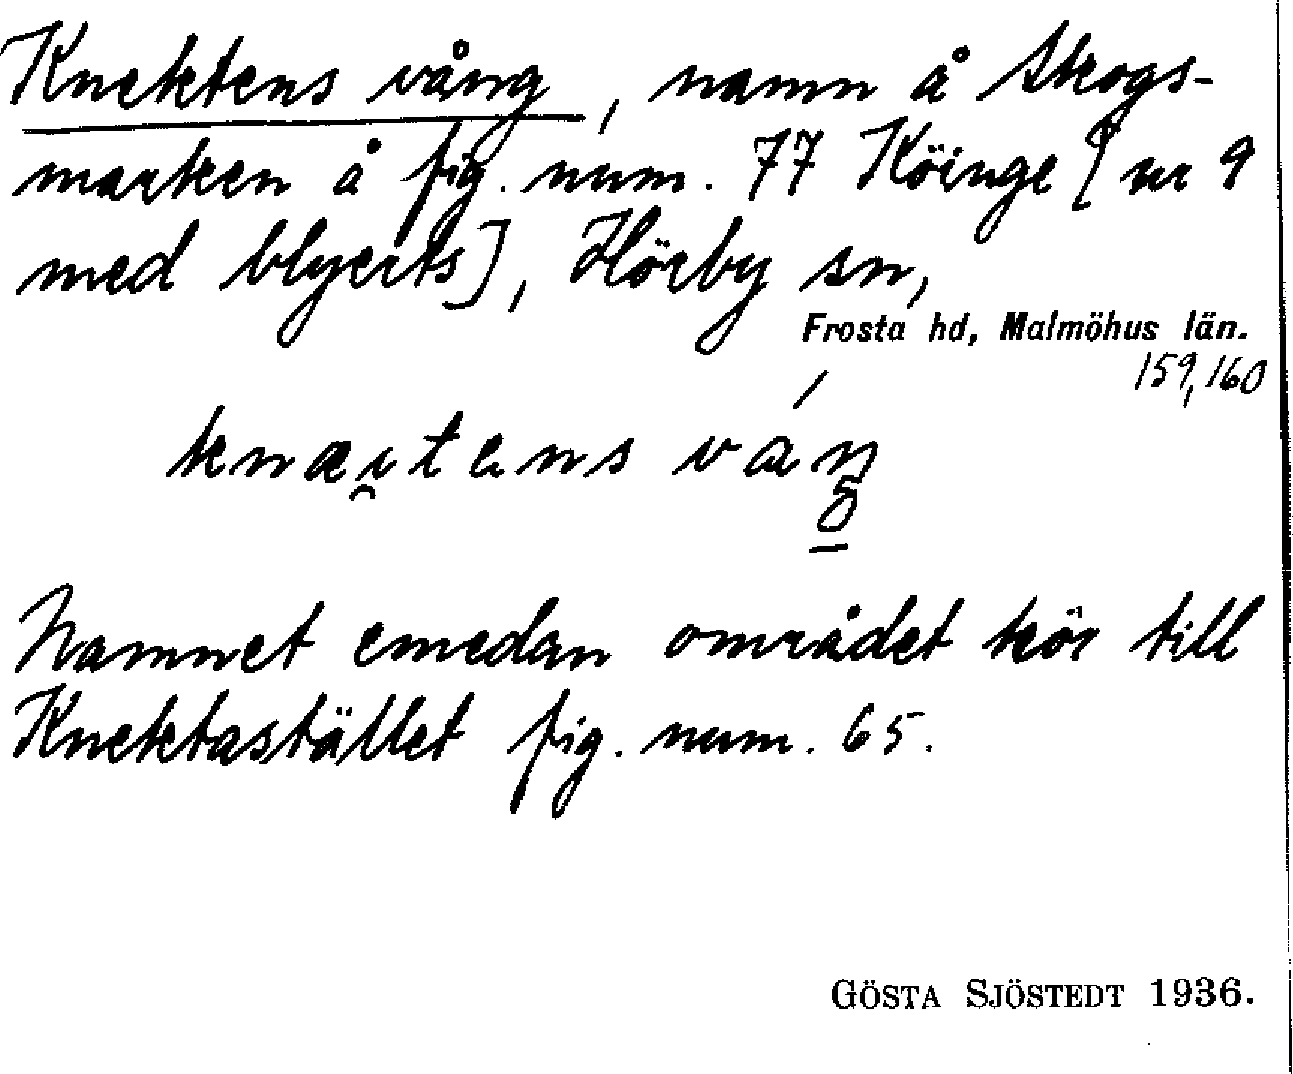 Knektens vång, namn å Skogs-
marken å fig. num. 77 Köinge [nr 9
med blyerts], Hörby sn,
Frosta hd, Malmöhus län.
159, 160
knæi̯tens váŋ
Namnet emedan området hör till
Knektastället fig. num. 65.
GÖSTA SJÖSTEDT 1936.